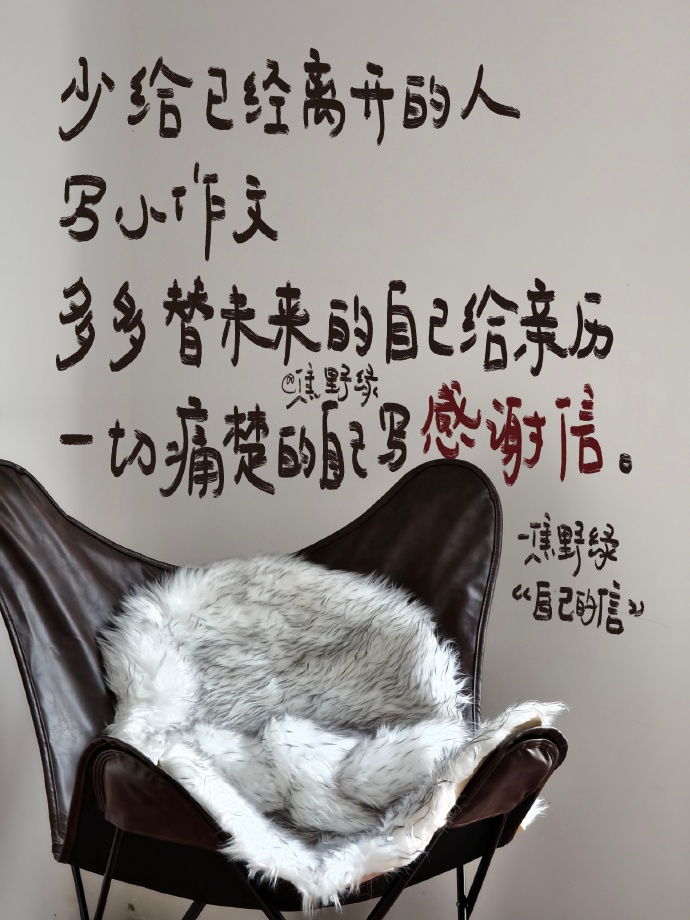 少给已经离开的人
写小作文
多多替未来的自己给亲历
@焦野绿
一切痛楚的自己写感谢信。
焦野绿
“自己的信”